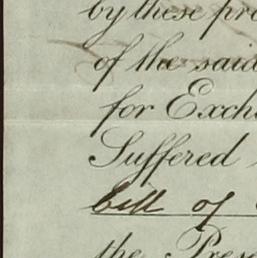 by these pre
of the said
for Exch
Suffered
bill of
the Prese